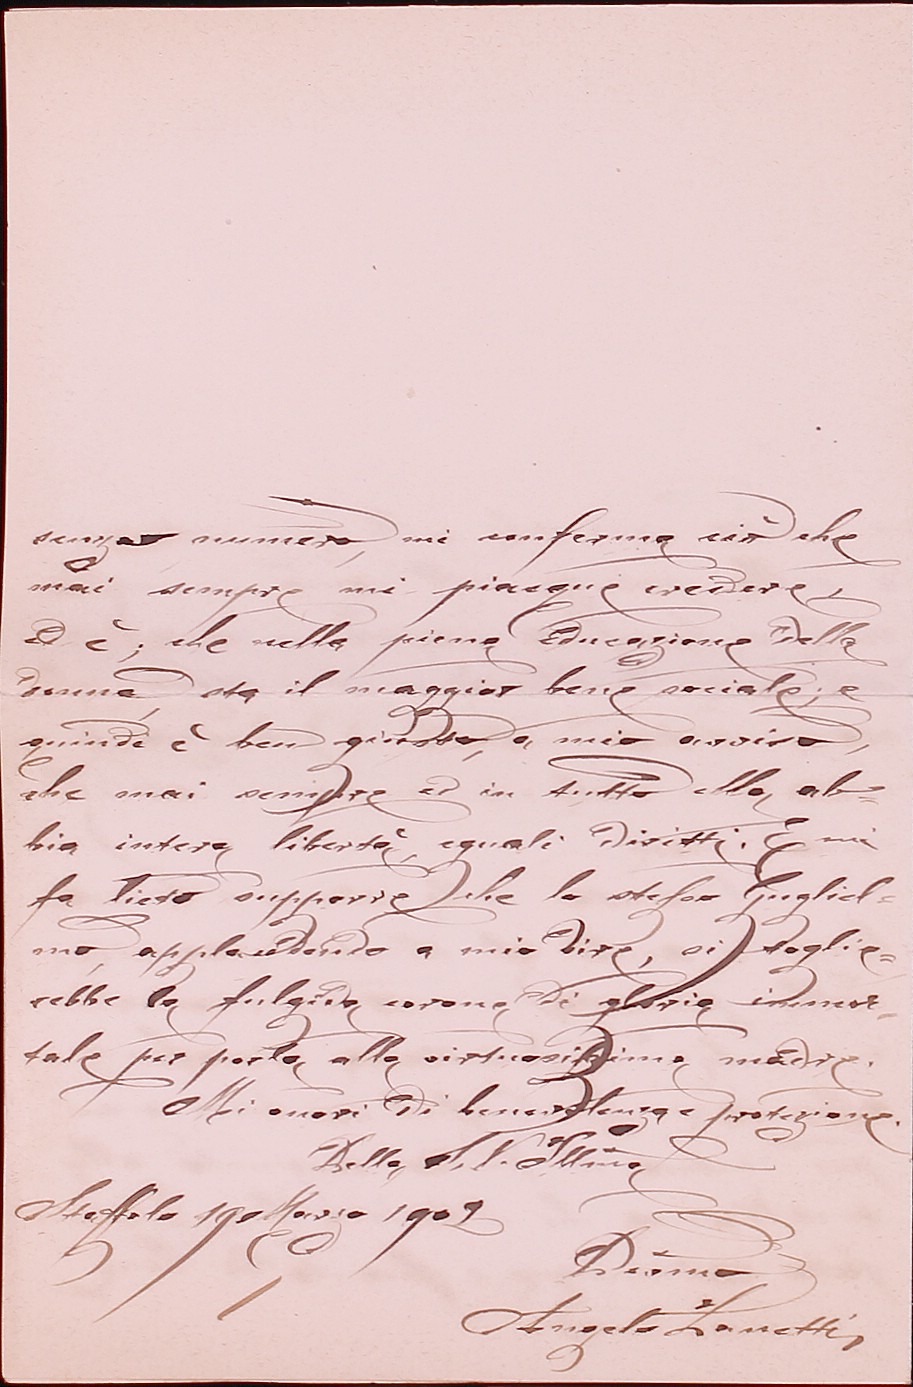 senza numero, mi conferma ciò che
mai sempre mi piacque credere,
ed è; che nella piena educazione della
donna, sta il maggior bene sociale; e
quindi è ben giusto, a mio avviso,
che mai sempre ed in tutto ella ab=
bia intera libertà, eguali diritti. E mi
fa lieto supporre che lo stesso Gugliel=
mo, applaudendo a mio dire, si toglie=
rebbe la fulgida corona di gloria immor=
tale per porla alla virtuosissima madre.
Mi onori di benevolenza e protezione.
Della S. V. Illma
Staffolo 19 Marzo 1902
Devmo
Angelo Zanetti